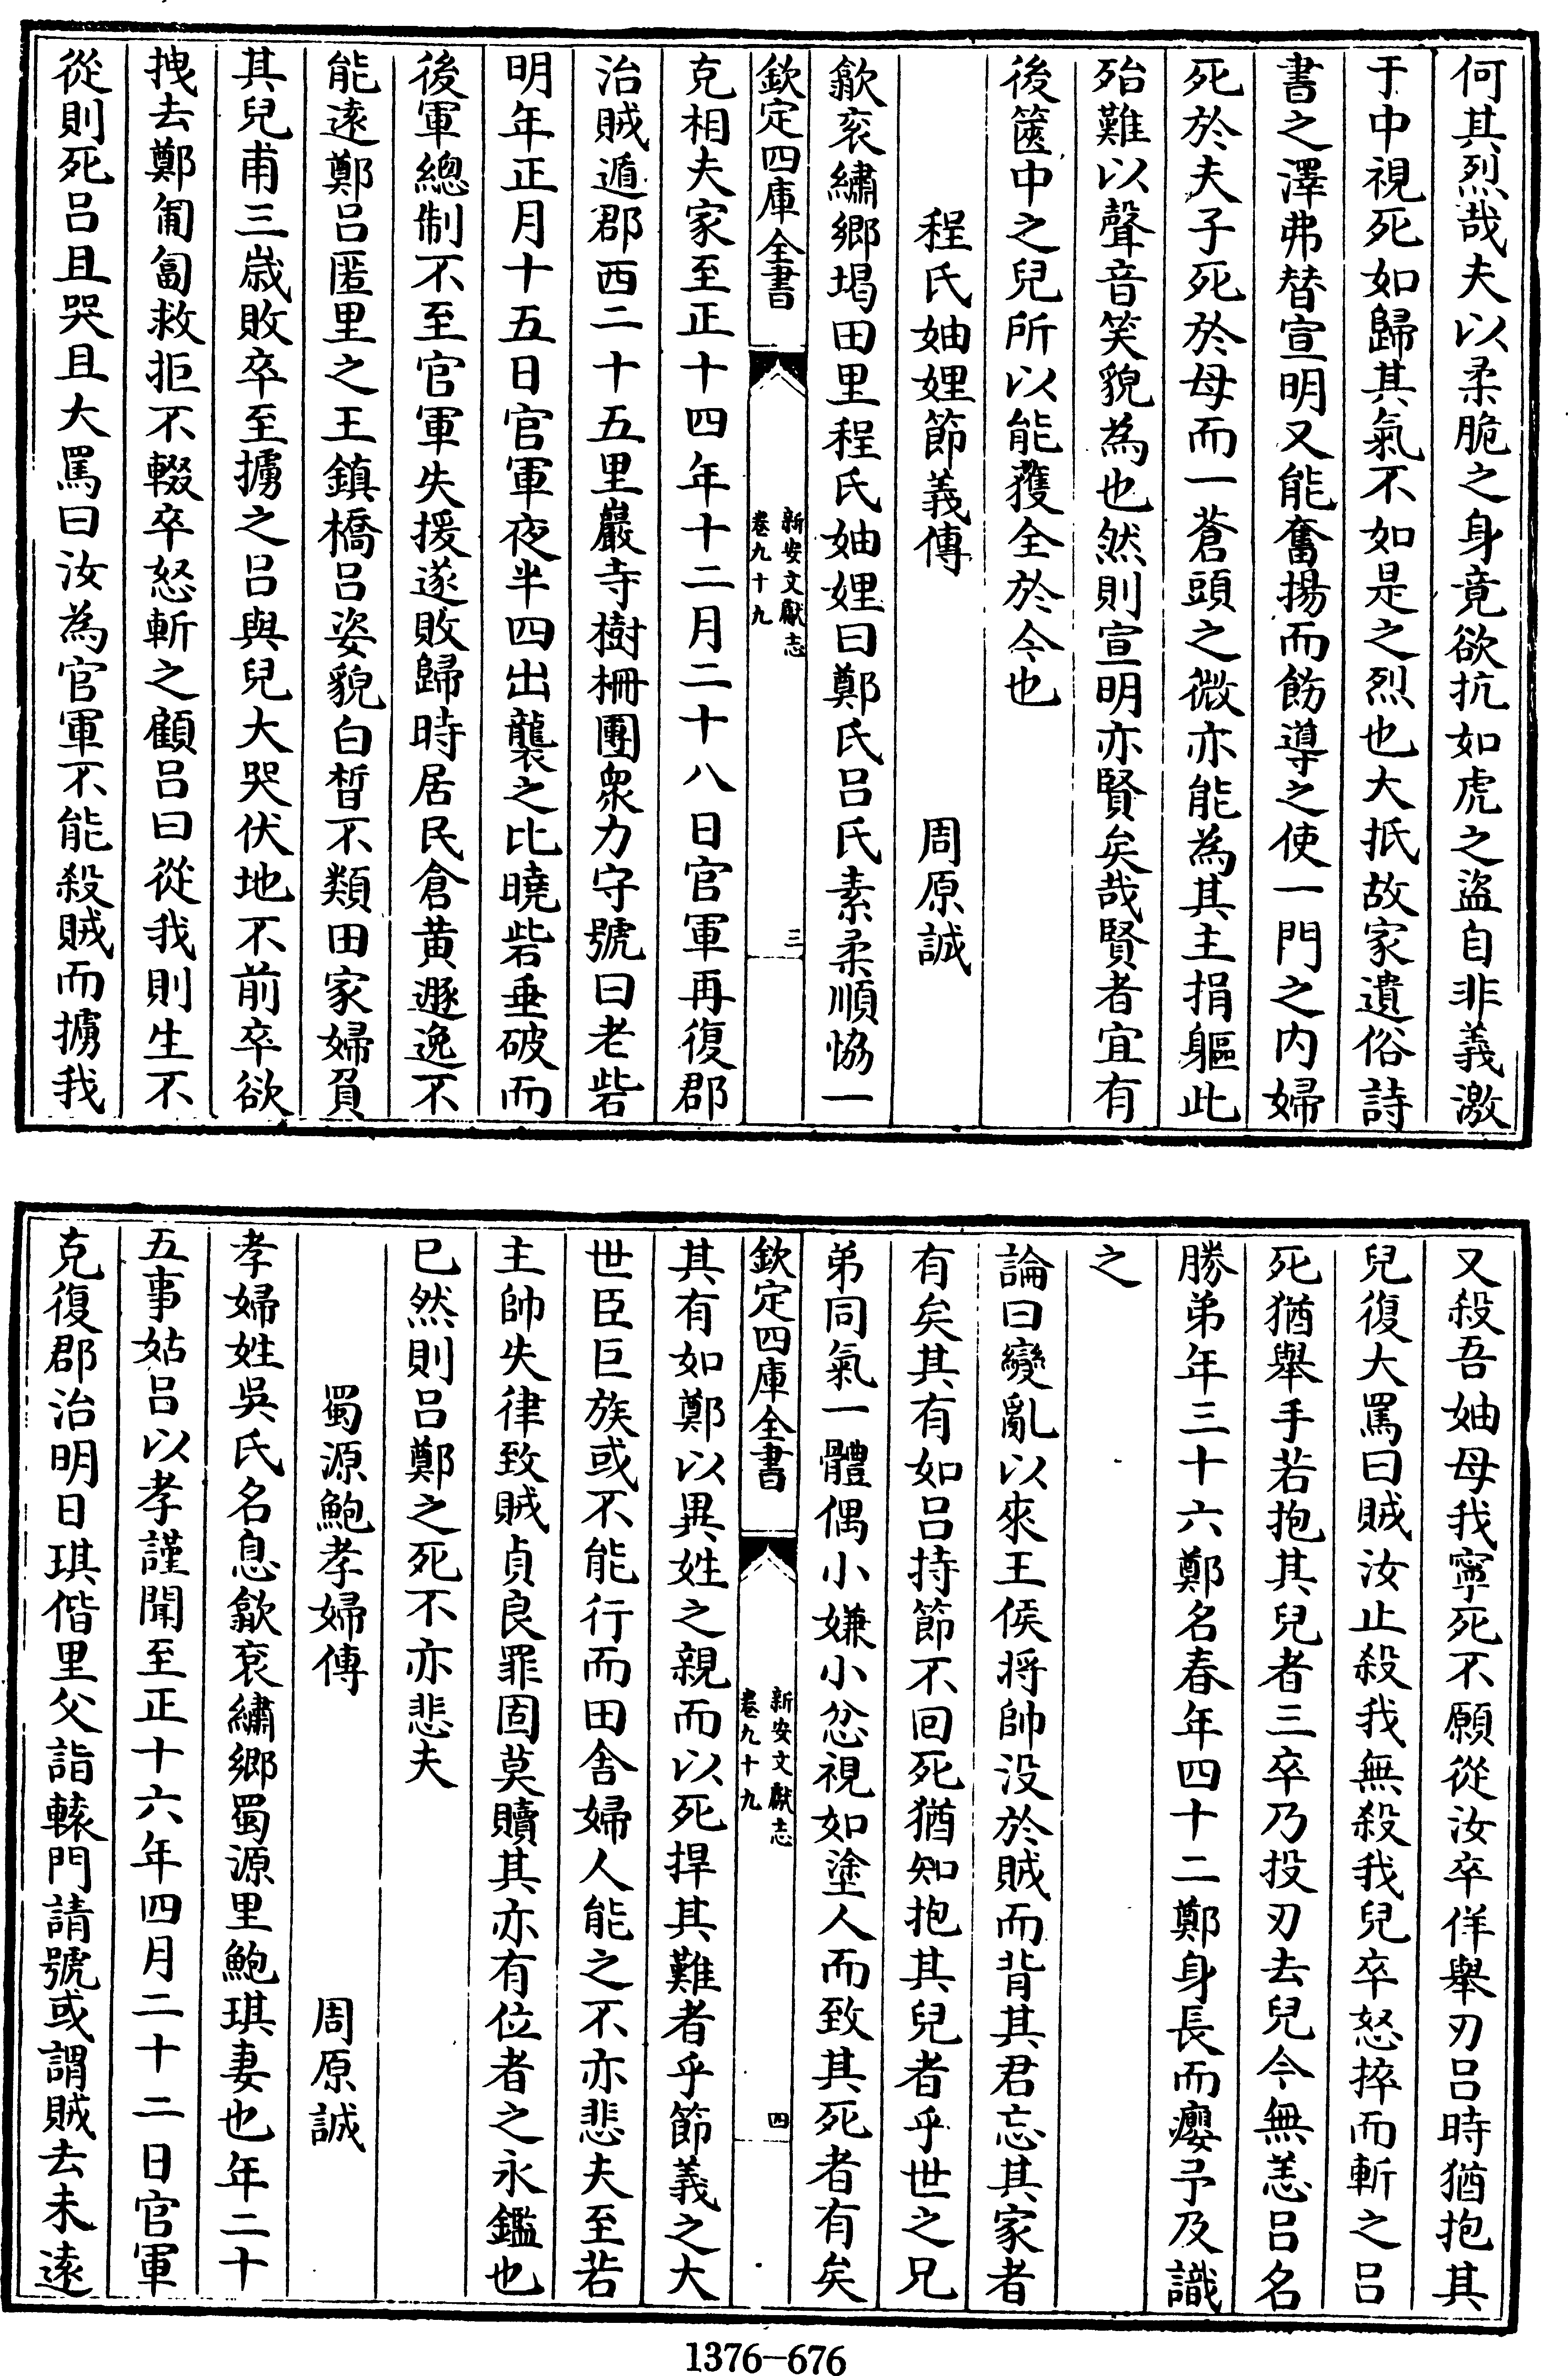 何其烈哉夫以柔脆之身竟欲抗如虎之盜自非義激
于中視死如歸其氣不如是之烈也大抵故家遺俗詩
書之澤弗替宣明又能奮揚而飭導之使一門之內婦
死於夫子死於母而一蒼頭之微亦能為其主捐軀此
殆難以聲音笑貌為也然則宣明亦賢矣哉賢者宜有
後篋中之兒所以能獲全於今也
程氏妯娌節義傳 周原誠
歙衮繡鄉堨田里程氏妯娌曰鄭氏呂氏素柔順恊一
欽定四庫全書
新安文獻志
卷九十九
三
克相夫家至正十四年十二月二十八日官軍再復郡
治賊遁郡西二十五里巖寺樹柵團衆力守號曰老砦
明年正月十五日官軍夜半四出襲之比曉砦垂破而
後軍總制不至官軍失援遂敗歸時居民倉黄遯逸不
能遠鄭呂匿里之王鎮橋呂姿貌白晳不類田家婦負
其兒甫三歳敗卒至擄之呂與兒大哭伏地不前卒欲
拽去鄭匍匐救拒不輟卒怒斬之顧呂曰從我則生不
從則死呂且哭且大罵曰汝為官軍不能殺賊而擄我
又殺吾妯母我寧死不願從汝卒佯舉刃呂時猶抱其
兒復大罵曰賊汝止殺我無殺我兒卒怒捽而斬之呂
死猶舉手若抱其兒者三卒乃投刃去兒今無恙呂名
勝弟年三十六鄭名春年四十二鄭身長而癭予及識
之
論曰變亂以來王侯將帥没於賊而背其君忘其家者
有矣其有如呂持節不回死猶知抱其兒者乎世之兄
弟同氣一體偶小嫌小忿視如塗人而致其死者有矣
欽定四庫全書
新安文獻志
卷九十九
四
其有如鄭以異姓之親而以死捍其難者乎節義之大
世臣巨族或不能行而田舍婦人能之不亦悲夫至若
主帥失律致賊貞良罪固莫贖其亦有位者之永鑑也
已然則呂鄭之死不亦悲夫
蜀源鮑孝婦傳 周原誠
孝婦姓吳氏名息歙衮繡鄉蜀源里鮑琪妻也年二十
五事姑呂以孝謹聞至正十六年四月二十二日官軍
克復郡治明日琪偕里父詣轅門請號或謂賊去未遠
1376—676